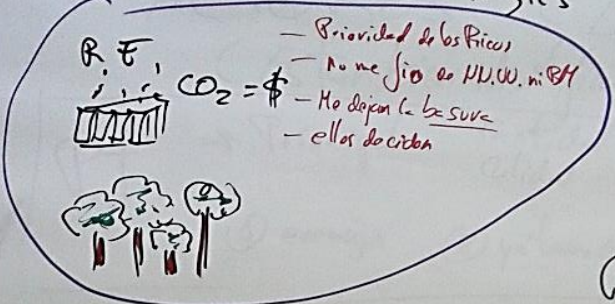 R. E.
CO₂ = $
- Prioridad de los Ricos
- No me fio de NN.UU. ni BM
- Me dejan la basura
- ellos deciden